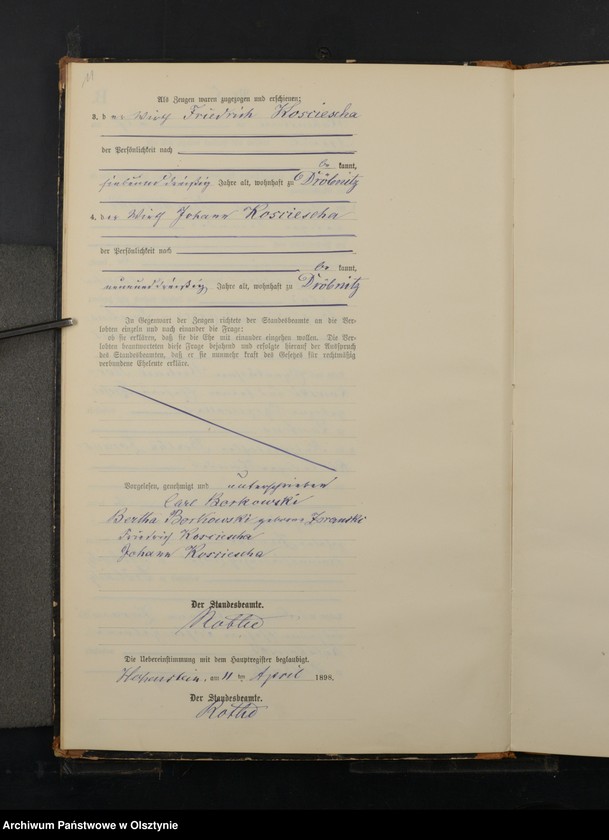 Als Zeugen waren zugezogen und erschienen:
3. der Wirth Friedrich Kosciescha
der Persönlichkeit nach
be kannt,
siebenunddreißig Jahre alt, wohnhaft zu Dröbnitz
4. der Wirth Johann Kosciescha
der Persönlichkeit nach
be kannt,
neununddreißig Jahre alt, wohnhaft zu Dröbnitz
In Gegenwart der Zeugen richtete der Standesbeamte an die Ver-
lobten einzeln und nach einander die Frage:
ob sie erklären, daß sie die Ehe mit einander eingehen wollen. Die Ver-
lobten beantworteten diese Frage bejahend und erfolgte hierauf der Ausspruch
des Standesbeamten, daß er sie nunmehr kraft des Gesetzes für rechtmäßig
verbundene Eheleute erkläre.
Vorgelesen, genehmigt und unterschrieben
Carl Borkowski
Bertha Borkowski geborene
Friedrich Kosciescha
Johann Kosciescha
Der Standesbeamte.
Rothe
Die Uebereinstimmung mit dem Hauptregister beglaubigt.
Hohenstein, am 11 ten April 1898.
Der Standesbeamte.
Rothe
Archiwum Państwowe w Olsztynie